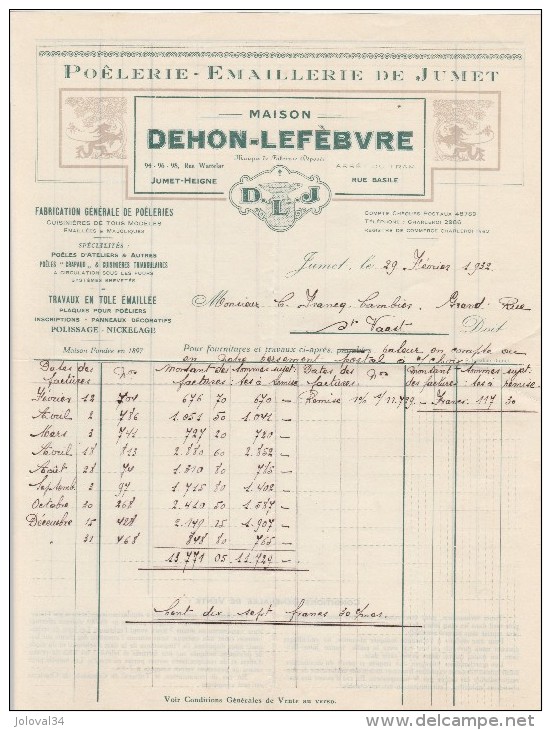 POÊLERIE - EMAILLERIE DE JUMET
MAISON
DEHON-LEFÈBVRE
94-96-98, Rue Wattelar
Marque de Fabrique Déposée
JUMET-HEIGNE
RUE BASILE
D. L. J
FABRICATION GÉNÉRALE DE POÊLERIES
CUISINIÈRES DE TOUS MODÈLES
ÉMAILLÉES & MAJOLIQUES
SPÉCIALITÉS :
POÊLES D'ATELIERS & AUTRES
POÊLES "CRAPAUD" & CUISINIÈRES TRIANGULAIRES
A CIRCULATION SOUS LES FOURS
SYSTÈMES BREVETÉS
TRAVAUX EN TOLE EMAILLÉE
PLAQUES POUR POÊLIERS
INSCRIPTIONS - PANNEAUX DÉCORATIFS
POLISSAGE - NICKELAGE
Maison Fondée en 1897
COMPTE CHÈQUES POSTAUX 48769
TÉLÉPHONE : CHARLEROI 2986
REGISTRE DE COMMERCE CHARLEROI
Jumet, le 29 Février 1932
Monsieur C. Francq-Cambier, Grand-Rue
St Vaast Doit
Pour fournitures et travaux ci-après, valeur en compte ou
en votre versement postal à
Dates des factures Nos Montant des factures Sommes sujettes à remise Dates des factures Nos Montant des factures Sommes sujettes à remise
Février 12 704 676 70 670 – Remise 1% s/ 11.729.– Francs 117 30
Avril 2 786 1.051 50 1.041 –
Mars 3 741 727 20 720 –
Avril 18 813 2.880 60 2.852 –
Août 28 70 1.310 80 785 –
Septemb. 2 97 1.715 80 1.402 –
Octobre 10 268 2.410 50 1.587 –
Décembre 15 428 2.149 25 1.907 –
" 31 468 848 80 765 –
13.771 05 11.729 –
Cent dix sept francs 30 cmes.
Voir Conditions Générales de Vente au verso.
joloval34
delcampe.net